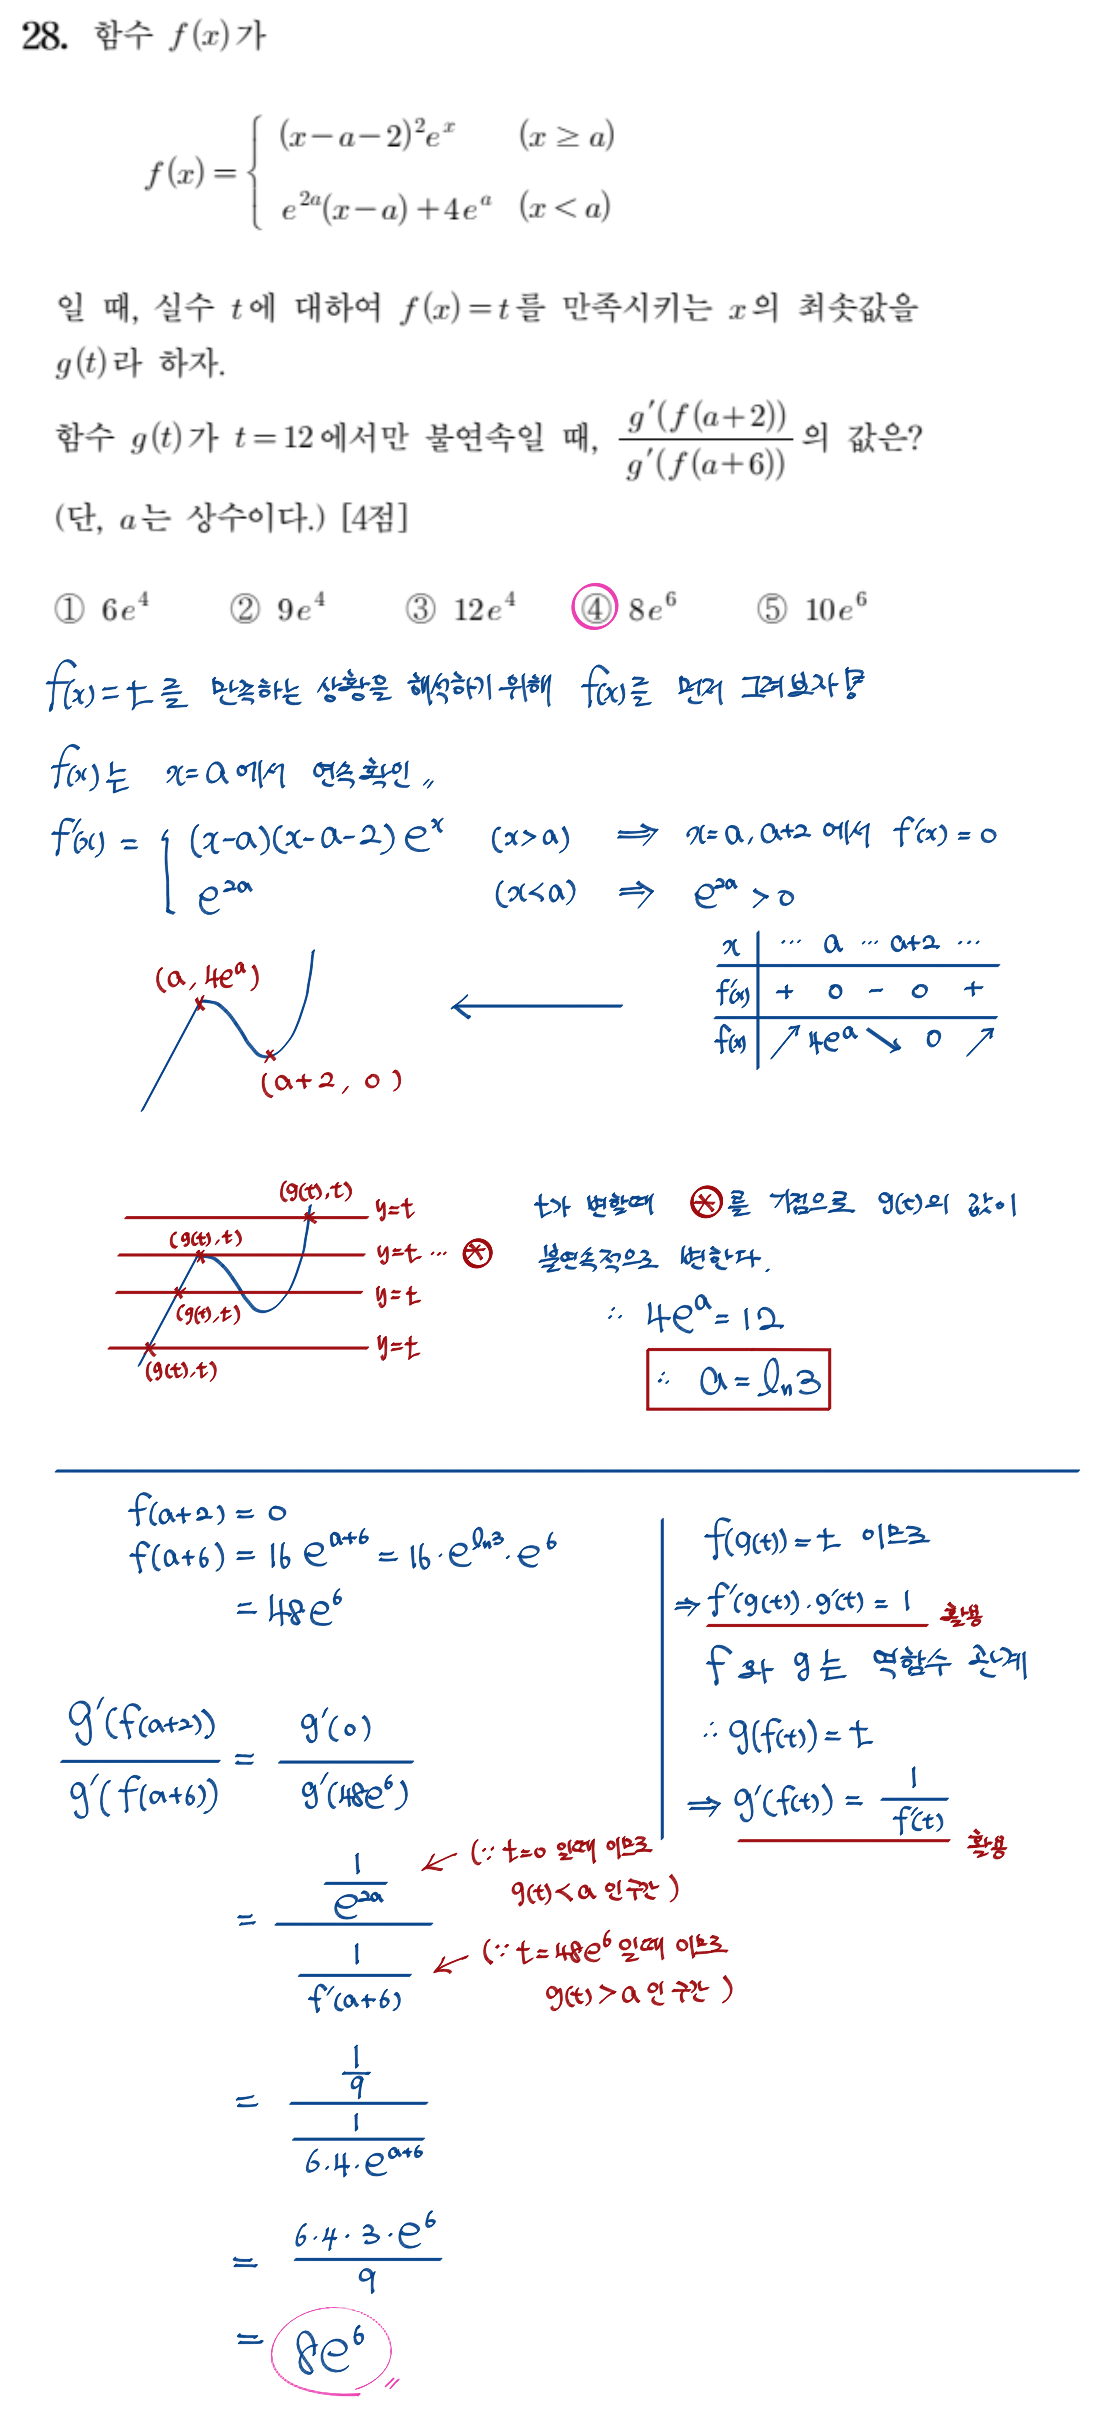 28. 함수 f(x)가
f(x) = { (x-a-2)²eˣ (x ≥ a)
e²ᵃ(x-a)+4eᵃ (x < a)
일 때, 실수 t에 대하여 f(x)=t를 만족시키는 x의 최솟값을
g(t)라 하자.
함수 g(t)가 t=12에서만 불연속일 때, g′(f(a+2))/g′(f(a+6))의 값은?
(단, a는 상수이다.) [4점]
① 6e⁴ ② 9e⁴ ③ 12e⁴ ④ 8e⁶ ⑤ 10e⁶
f(x)=t를 만족하는 상황을 해석하기 위해 f(x)를 먼저 그려보자!
f(x)는 x=a에서 연속확인〃
f′(x) = { (x-a)(x-a-2)eˣ (x>a) ⇒ x=a, a+2에서 f′(x)=0
e²ᵃ (x<a) ⇒ e²ᵃ > 0
x | ⋯ a ⋯ a+2 ⋯
f′(x) | + 0 - 0 +
f(x) | ↗ 4eᵃ ↘ 0 ↗
(a, 4eᵃ)
←
(a+2, 0)
(g(t), t) y=t
(g(t), t) y=t ⋯ ⊛
(g(t), t) y=t
(g(t), t) y=t
t가 변할때 ⊛를 기점으로 g(t)의 값이
불연속적으로 변한다.
∴ 4eᵃ = 12
∴ a = ln3
f(a+2) = 0
f(a+6) = 16eᵃ⁺⁶ = 16·e^(ln3)·e⁶
= 48e⁶
f(g(t)) = t 이므로
⇒ f′(g(t))·g′(t) = 1 활용
f와 g는 역함수 관계
∴ g(f(t)) = t
⇒ g′(f(t)) = 1/f′(t) 활용
g′(f(a+2))/g′(f(a+6)) = g′(0)/g′(48e⁶)
= (1/e²ᵃ)/(1/f′(a+6))
← (∵ t=0 일때 이므로
g(t)<a 인 구간)
← (∵ t=48e⁶일때 이므로
g(t)>a 인 구간)
= (1/9)/(1/(6·4·eᵃ⁺⁶))
= (6·4·3·e⁶)/9
= 8e⁶〃